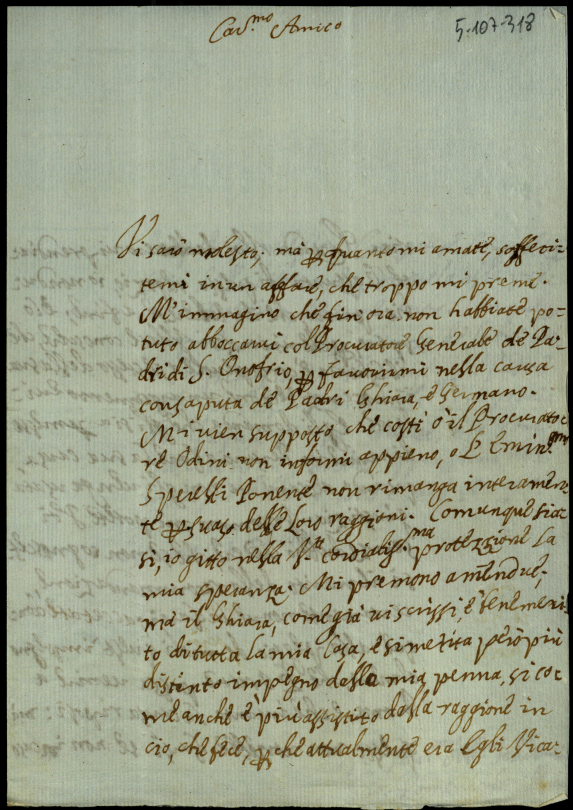 Car.mo Amico
5-107-318
Vi sarò molesto; mà p quanto mi amate, soffeci-
temi in un affare, che troppo mi preme.
M'immagino che fin ora non habbiate po-
tuto abboccarvi col Procuratore Generale de Pa-
dri di S. Onofrio, p favorirmi nella causa
consaputa de Padri Ghiara, e Germano.
Mi vien supposto che costì ò il Procurato-
re Odini non informi appieno, o L'Emin.mo
Sperelli Ponente non rimanga interamen-
te psuaso delle Loro raggioni. Comunque sia-
si, io gitto nella V.ra cordialiss.ma protezzione la
mia speranza. Mi premono amendue;
mà il Ghiara, come già vi scrissi, è beneméri-
to di tutta la mia Casa, e si merita però più
distinto impegno dalla mia penna, si co-
me anche è più assistito dalla raggione in
ciò, che fece, p che attualmente era Egli Vica-